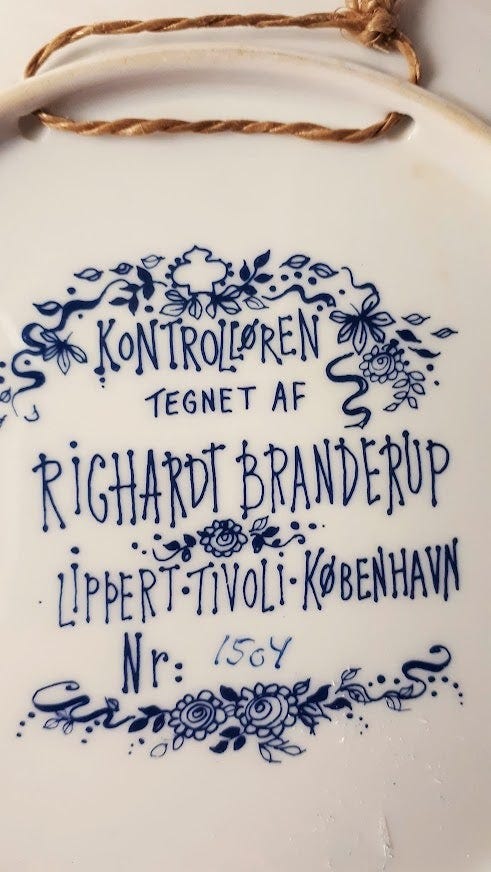 KONTROLLØREN
TEGNET AF
RIGHARDT BRANDERUP
LIPPERT·TIVOLI·KØBENHAVN
Nr: 1504